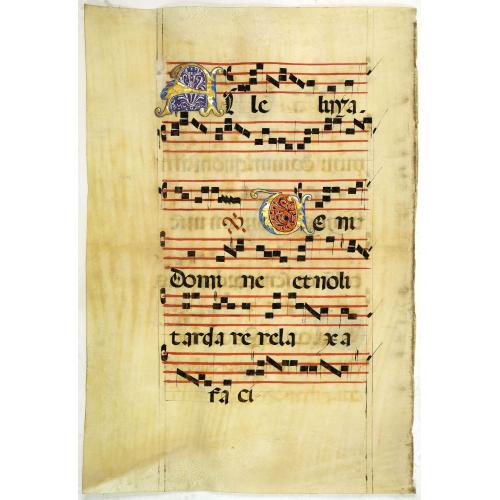 Alle luya.
℣. Veni
Domi ne et noli
tarda re rela xa
faci